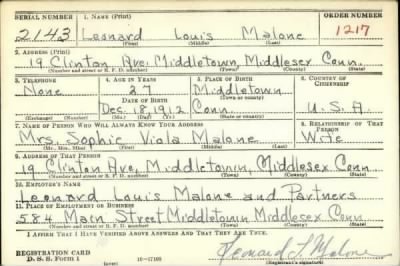 SERIAL NUMBER 1. NAME (Print) ORDER NUMBER
2143 Leonard Louis Malone 1217
(First) (Middle) (Last)
2. ADDRESS (Print)
19 Clinton Ave. Middletown, Middlesex Conn.
(Number and street or R. F. D. number) (Town) (County) (State)
3. TELEPHONE 4. AGE IN YEARS 5. PLACE OF BIRTH 6. COUNTRY OF CITIZENSHIP
None 27 Middletown
DATE OF BIRTH (Town or county)
Dec. 18, 1912 Conn U.S.A.
(Exchange) (Number) (Mo.) (Day) (Yr.) (State or country)
7. NAME OF PERSON WHO WILL ALWAYS KNOW YOUR ADDRESS 8. RELATIONSHIP OF THAT PERSON
Mrs. Sophie Viola Malone Wife
(Mr., Mrs., Miss) (First) (Middle) (Last)
9. ADDRESS OF THAT PERSON
19 Clinton Ave, Middletown, Middlesex Conn
(Number and street or R. F. D. number) (Town) (County) (State)
10. EMPLOYER'S NAME
Leonard Louis Malone and Partners
11. PLACE OF EMPLOYMENT OR BUSINESS
584 Main Street Middletown Middlesex Conn
(Number and street or R. F. D. number) (Town) (County) (State)
I AFFIRM THAT I HAVE VERIFIED ABOVE ANSWERS AND THAT THEY ARE TRUE.
REGISTRATION CARD
D. S. S. FORM 1 16-17105 Leonard L Malone
(Registrant's signature)